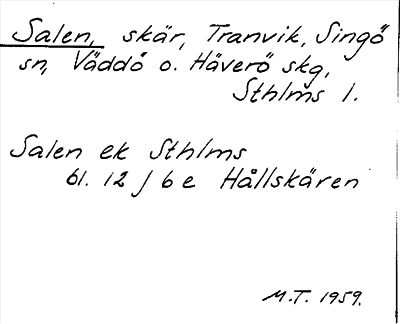 Salen, skär, Tranvik, Singö
sn, Väddö o. Häverö skg,
Sthlms l.
Salen ek Sthlms
bl. 12 J 6 e Hållskären
M.T. 1959.